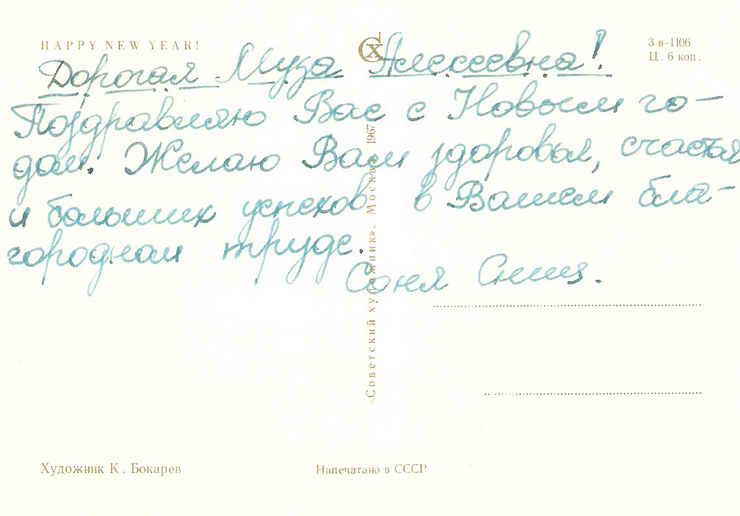 HAPPY NEW YEAR!
СХ
З в-1106
Ц. 6 коп.
Дорогая Муза Алексеевна!
Поздравляю Вас с Новым го-
дом. Желаю Вам здоровья, счастья
и больших успехов в Вашем бла-
городном труде.
Соня
«Советский художник». Москва. 1967
Художник К. Бокарев
Напечатано в СССР